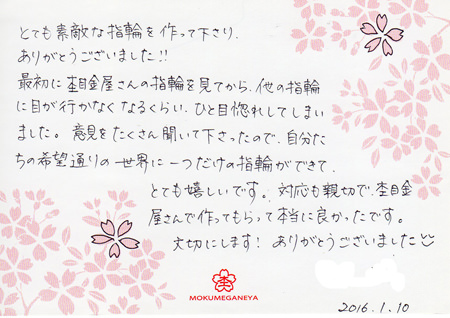 とても素敵な指輪を作って下さり、
ありがとうございました!!
最初に杢目金屋さんの指輪を見てから、他の指輪
に目が行かなくなるくらい、ひと目惚れしてしまい
ました。意見をたくさん聞いて下さったので、自分た
ちの希望通りの世界に一つだけの指輪ができて、
とても嬉しいです。対応も親切で、杢目金
屋さんで作ってもらって本当に良かったです。
大切にします! ありがとうございました
杢
MOKUMEGANEYA
2016.1.10